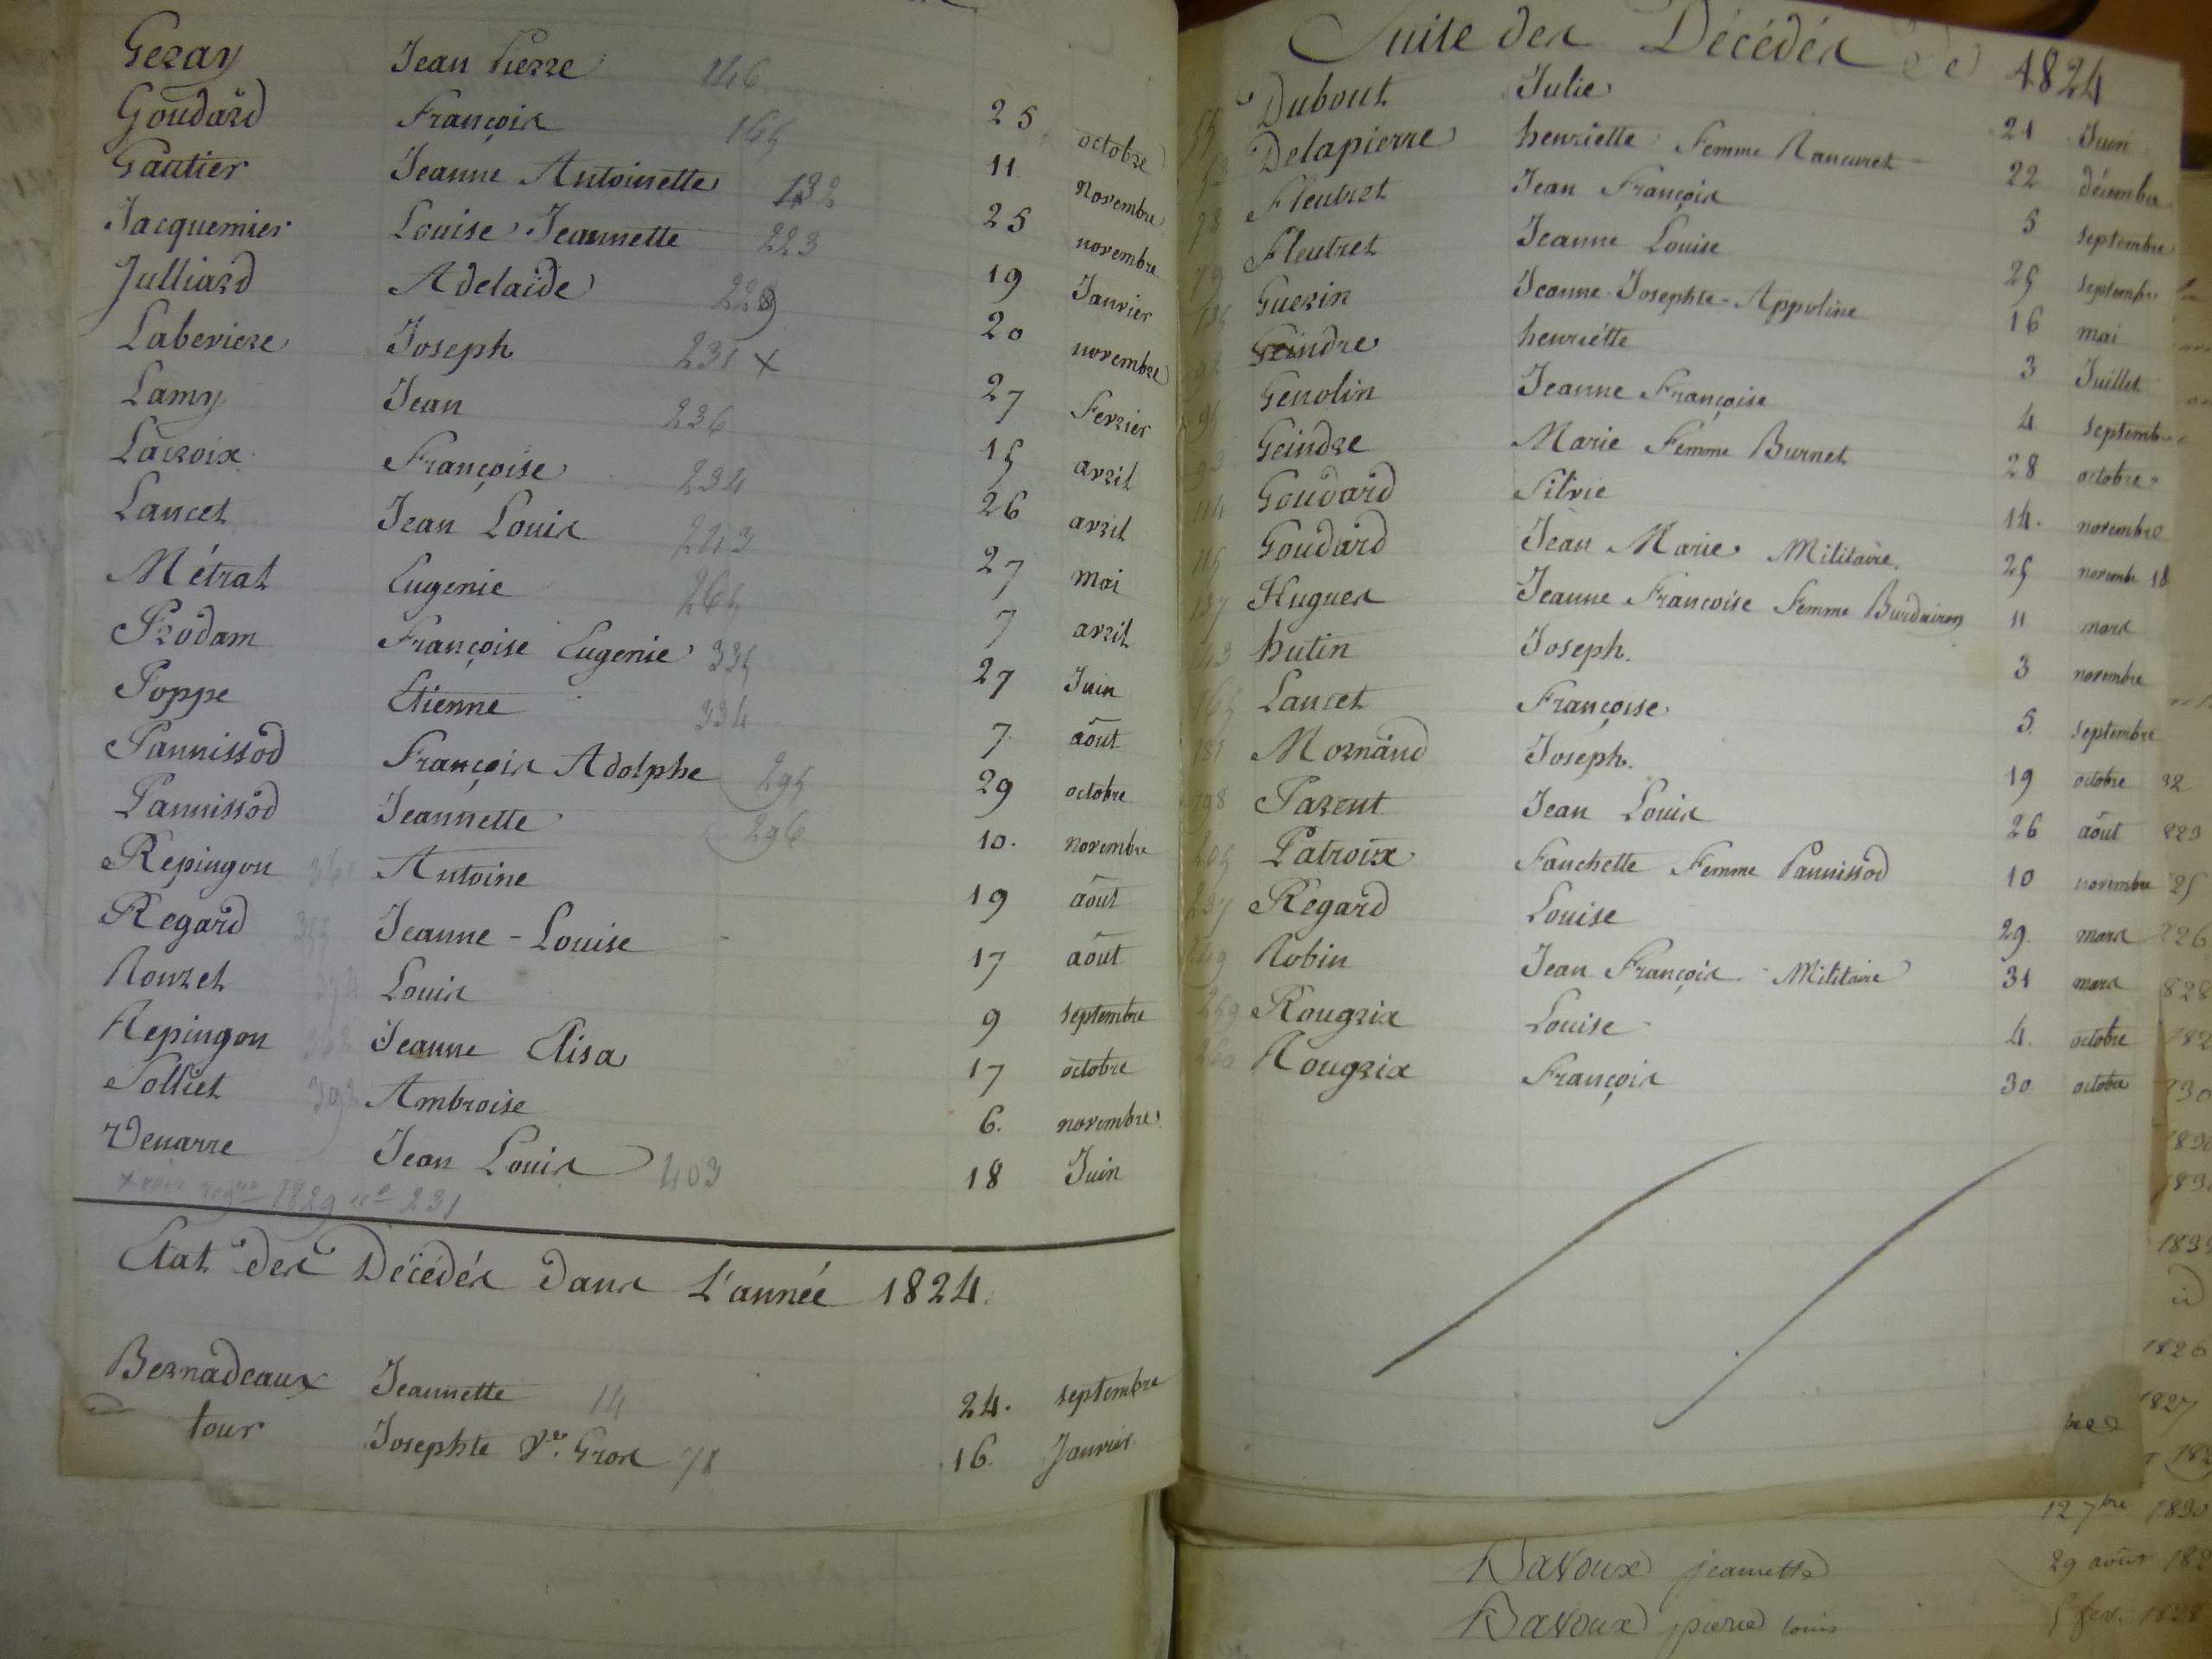 Geray Jean Pierre 146 25 octobre
Goudard François 165 11 Novembre
Gautier Jeanne Antoinette 132 25 novembre
Jacquemier Louise Jeannette 223 19 Janvier
Julliard Adelaide 229 20 novembre
Laberiere Joseph 231 x 27 Fevrier
Lamy Jean 236 15 avril
Lacroix Françoise 234 26 avril
Lancet Jean Louis 243 27 mai
Métral Eugenie 265 7 avril
Prodam Françoise Eugenie 335 27 Juin
Poppe Etienne 334 7 août
Pannissod François Adolphe 295 29 octobre
Pannissod Jeannette 296 10. novembre
Repingon 361 Antoine 19 août
Regard 355 Jeanne-Louise 17 août
Rouzet Louis 9 septembre
Repingon 362 Jeanne Elisa 17 octobre
Solliet 392 Ambroise 6. novembre
Venarre Jean Louis 403 18 Juin
x voir 1829 no 231
Etat des Décédés dans L'année 1824.
Bernadeaux Jeannette 14 24. septembre
tour Josephte Ve. Gros 78 16. Janvier
Suite des Décédés de 1824
55 Dubout Julie 21 Juin
Delapierre henriette Femme Rancuret 22 décembre
78 Fleutret Jean François 5 septembre
79 Fleutret Jeanne Louise 25 septembre
135 Guerin Jeanne-Josephte-Appoline 16 mai
Geindre henriette 3 Juillet
95 Genolin Jeanne Françoise 4 septembre
93 Geindre Marie Femme Burnet 28 octobre
114 Goudard Silvie 14. novembre
115 Goudard Jean Marie Militaire. 25 novembre 18
137 Hugues Jeanne Françoise Femme Burdairon 11 mars
143 hutin Joseph. 3 novembre
165 Lancet Françoise 5 septembre
181 Mornand Joseph. 19 octobre 32
198 Parent Jean Louis 26 août 823
205 Patroix Fanchette Femme Pannissod 10 novembre 25
237 Regard Louise 29. mars 826
249 Robin Jean François - Militaire 31 mars 828
259 Rougrix Louise 4. octobre 182
260 Rougrix François 30 octobre 30
1826
1827
12 7bre 1830
Davoux jeannette 29 août 182
Davoux pierre louis 5 fev. 1828